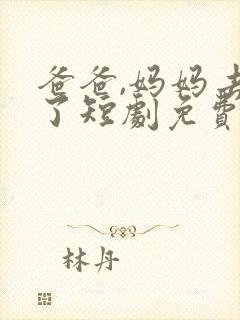 爸爸,妈妈去
了短劇免費
林丹